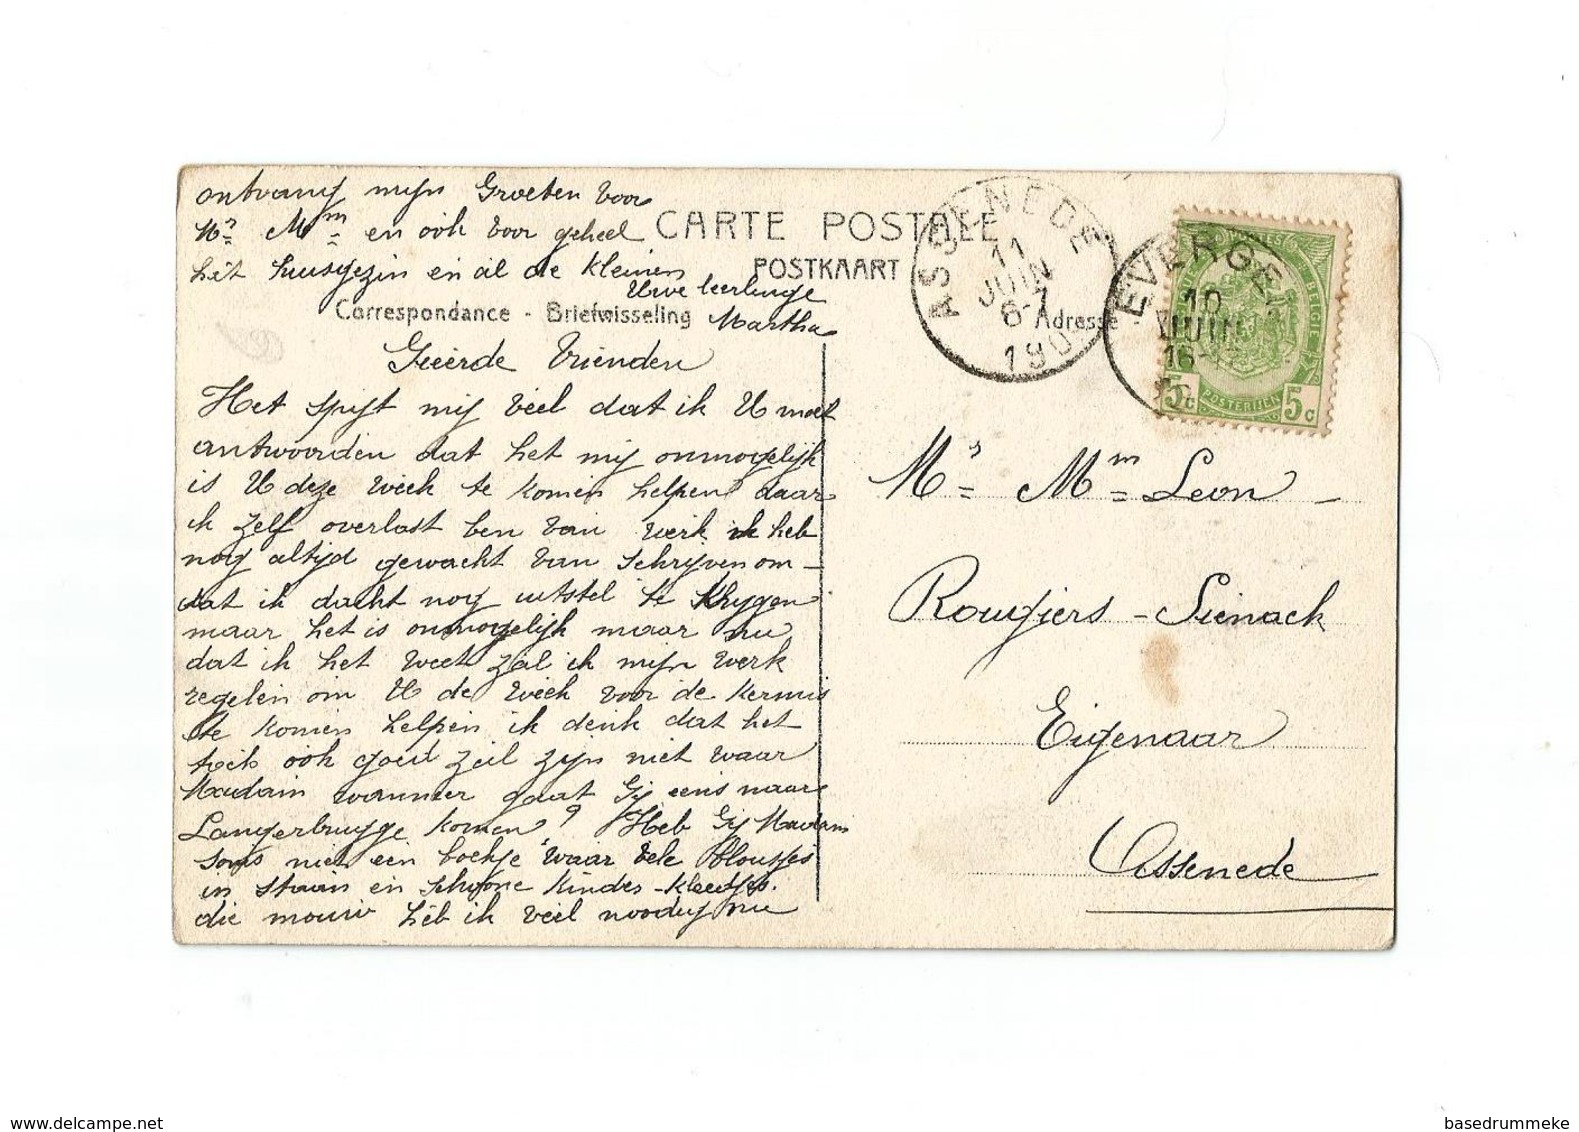 ontvang mijn Groeten voor
Mr Mm en ook voor geheel
hét huisgezin en al de Kleinen
Uwe leerlinge
Martha
CARTE POSTALE
POSTKAART
Correspondance - Briefwisseling
Adresse -
ASSENEDE
11
JUIN
6-7
190
EVERGE
10
JUIN
16-
BELGIE
POSTERIJEN
5c
5c
Geéérde Vriénden
Het spijt mij veel dat ik U moet
antwoorden dat het mij onmogelijk
is U deze week te komen helpen daar
ik zelf overlast ben van werk ik heb
nog altijd gewacht van schrijven om-
dat ik dacht nog uitstel te Krygen
maar het is onmogelijk maar nu
dat ik het weet zal ik mijn werk
regelen om U de week voor de Kermis
te komen helpen ik denk dat het
toch ook goed zal zijn niet waar
Madam wanneer gaat Gij eens naar
Langerbrugge komen? Heb Gij Madam
soms niet een boekje waar vele blousjes
in staan en schoone Kinder-Kleedjes.
die mouw heb ik veel noodig nu
Mr = Mm = Leon -
Rougiers - Sienack
Eigenaar
Assenede
delcampe.net
basedrummeke